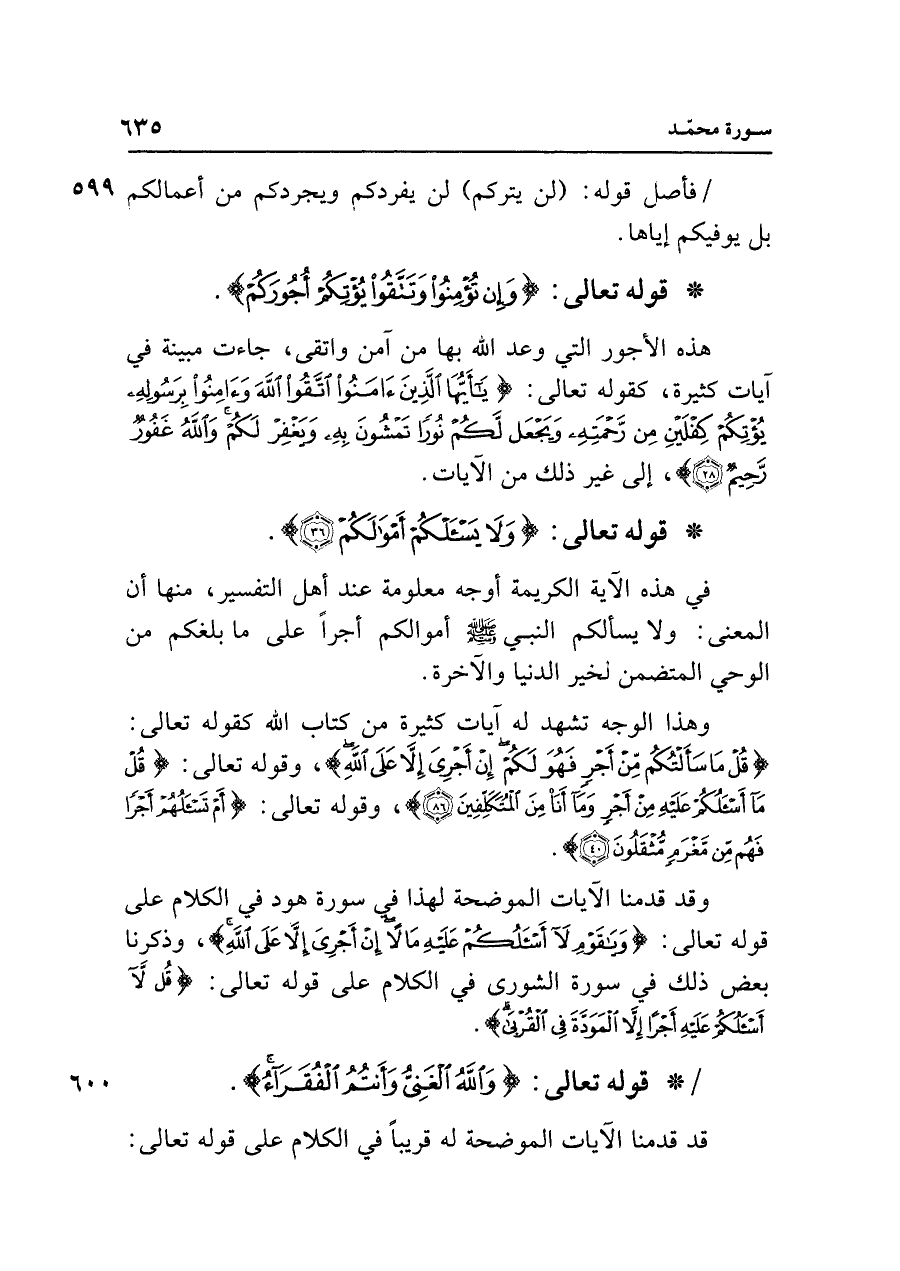 سورة محمّد ٦٣٥
/ فأصل قوله: (لن يتركم) لن يفردكم ويجردكم من أعمالكم ٥٩٩
بل يوفيكم إياها.
* قوله تعالى: ﴿وَإِن تُؤْمِنُوا۟ وَتَتَّقُوا۟ يُؤْتِكُمْ أُجُورَكُمْ﴾.
هذه الأجور التي وعد الله بها من آمن واتقى، جاءت مبينة في
آيات كثيرة، كقوله تعالى: ﴿يَٰٓأَيُّهَا ٱلَّذِينَ ءَامَنُوا۟ ٱتَّقُوا۟ ٱللَّهَ وَءَامِنُوا۟ بِرَسُولِهِۦ
يُؤْتِكُمْ كِفْلَيْنِ مِن رَّحْمَتِهِۦ وَيَجْعَل لَّكُمْ نُورًا تَمْشُونَ بِهِۦ وَيَغْفِرْ لَكُمْ ۚ وَٱللَّهُ غَفُورٌ
رَّحِيمٌ ٢٨﴾، إلى غير ذلك من الآيات.
* قوله تعالى: ﴿وَلَا يَسْـَٔلْكُمْ أَمْوَٰلَكُمْ ٣٦﴾.
في هذه الآية الكريمة أوجه معلومة عند أهل التفسير، منها أن
المعنى: ولا يسألكم النبي ﷺ أموالكم أجراً على ما بلغكم من
الوحي المتضمن لخير الدنيا والآخرة.
وهذا الوجه تشهد له آيات كثيرة من كتاب الله كقوله تعالى:
﴿قُلْ مَا سَأَلْتُكُم مِّنْ أَجْرٍ فَهُوَ لَكُمْ ۖ إِنْ أَجْرِىَ إِلَّا عَلَى ٱللَّهِ ۖ﴾، وقوله تعالى: ﴿قُلْ
مَآ أَسْـَٔلُكُمْ عَلَيْهِ مِنْ أَجْرٍ وَمَآ أَنَا۠ مِنَ ٱلْمُتَكَلِّفِينَ ٨٦﴾، وقوله تعالى: ﴿أَمْ تَسْـَٔلُهُمْ أَجْرًا
فَهُم مِّن مَّغْرَمٍ مُّثْقَلُونَ ٤٠﴾.
وقد قدمنا الآيات الموضحة لهذا في سورة هود في الكلام على
قوله تعالى: ﴿وَيَٰقَوْمِ لَآ أَسْـَٔلُكُمْ عَلَيْهِ مَالًا ۖ إِنْ أَجْرِىَ إِلَّا عَلَى ٱللَّهِ ۚ﴾، وذكرنا
بعض ذلك في سورة الشورى في الكلام على قوله تعالى: ﴿قُل لَّآ
أَسْـَٔلُكُمْ عَلَيْهِ أَجْرًا إِلَّا ٱلْمَوَدَّةَ فِى ٱلْقُرْبَىٰ ۗ﴾.
/ * قوله تعالى: ﴿وَٱللَّهُ ٱلْغَنِىُّ وَأَنتُمُ ٱلْفُقَرَآءُ ۚ﴾. ٦٠٠
قد قدمنا الآيات الموضحة له قريباً في الكلام على قوله تعالى: